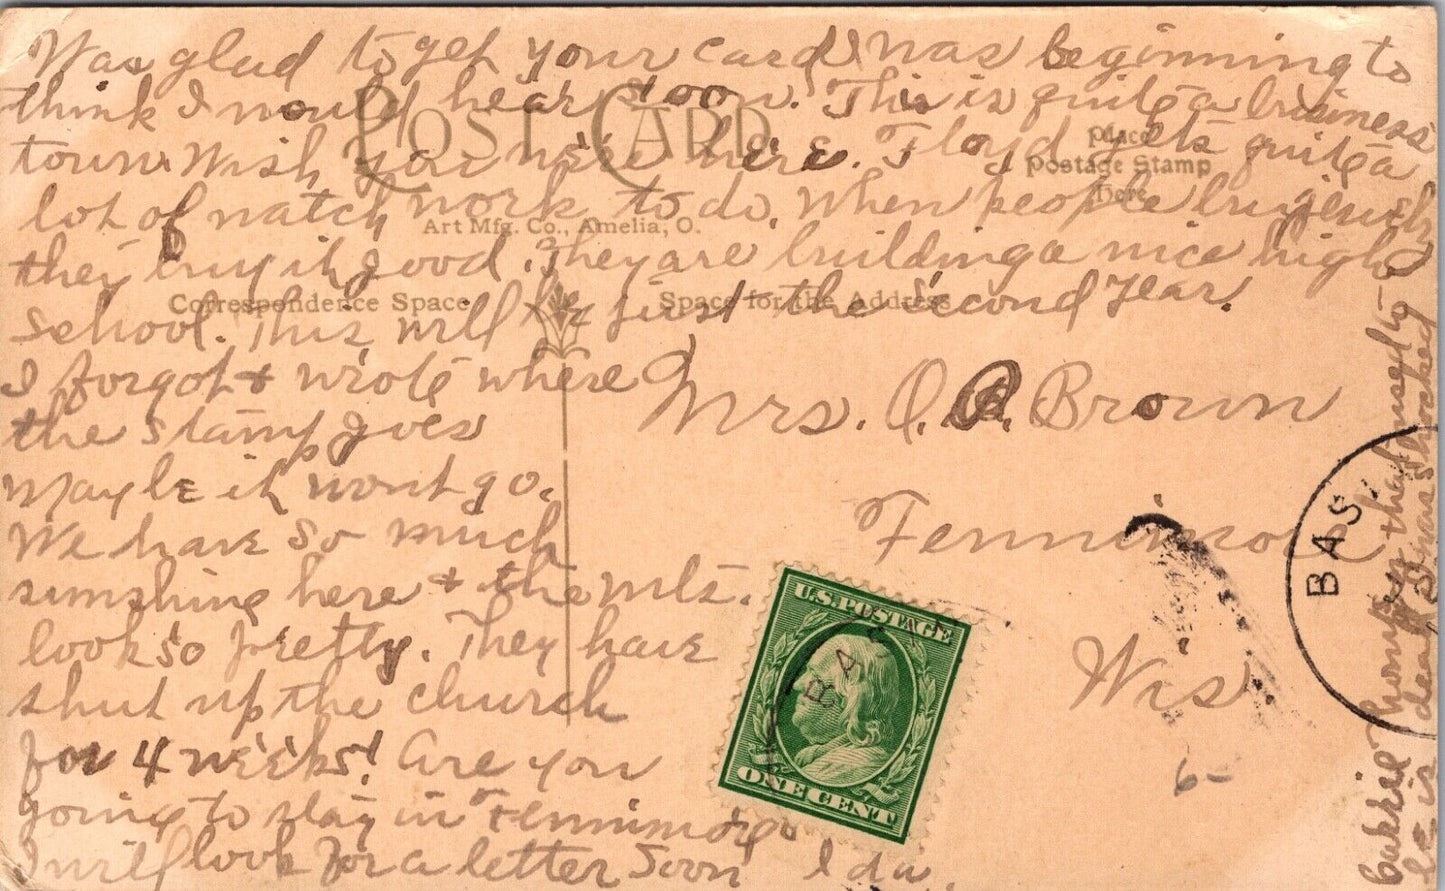 Was glad to get your card, I was beginning to
think I would hear soon. This is quite a business
town. Wish you were here. Floyd gets quite a
lot of watch work to do. When people buy jewelry
they buy it good. They are building a nice high
school. This will be first the second year.
I forgot & wrote where
the stamp goes
Maybe it wont go.
We have so much
sunshine here & the mts.
look so pretty. They have
shut up the church
for 4 weeks! Are you
going to stay in Fennimore
I will look for a letter soon Ida.
POST CARD
Place
Postage Stamp
here
Art Mfg. Co., Amelia, O.
Correspondence Space
Space for the Address
Mrs. O. A. Brown
Fennimore
Wis
BAS
U.S. POSTAGE
BAS
ONE CENT
6-
that used to
he is dead I was shocked